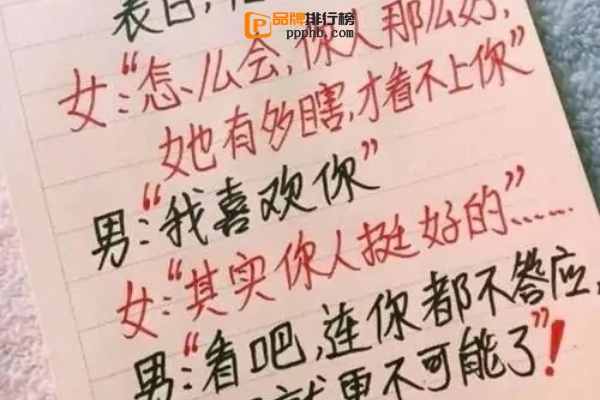 品牌排行榜
ppphb.com
表白,
女:“怎么会,你人那么好,
她有多瞎,才看不上你”
男:“我喜欢你”
女:“其实你人挺好的”......
男:“看吧,连你都不答应,
就更不可能了”!